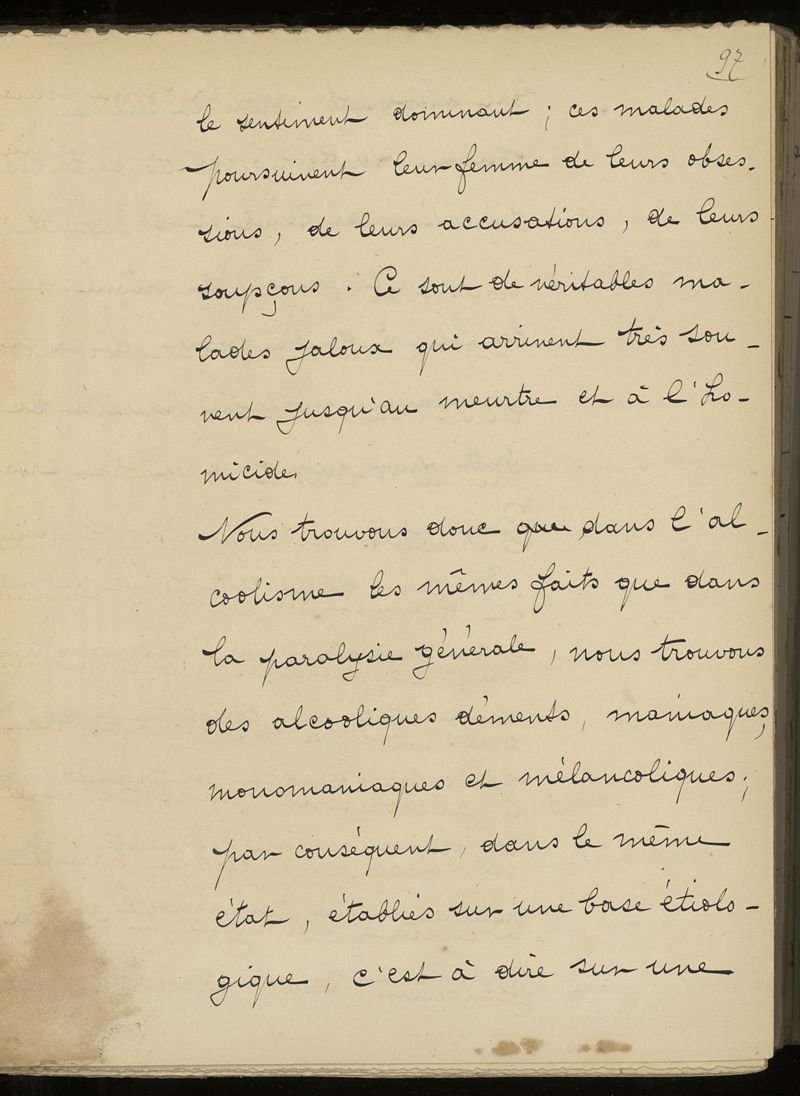 97
le sentiment dominant ; ces malades
poursuivent leur femme de leurs obses-
sions, de leurs accusations, de leurs
soupçons. Ce sont de véritables ma-
lades jaloux qui arrivent très sou-
vent jusqu'au meurtre et à l'ho-
micide.
Nous trouvons donc que dans l'al-
coolisme les mêmes faits que dans
la paralysie générale, nous trouvons
des alcooliques déments, maniaques,
monomaniaques et mélancoliques ;
par conséquent, dans le même
état, établies sur une base étiolo-
gique, c'est à dire sur une